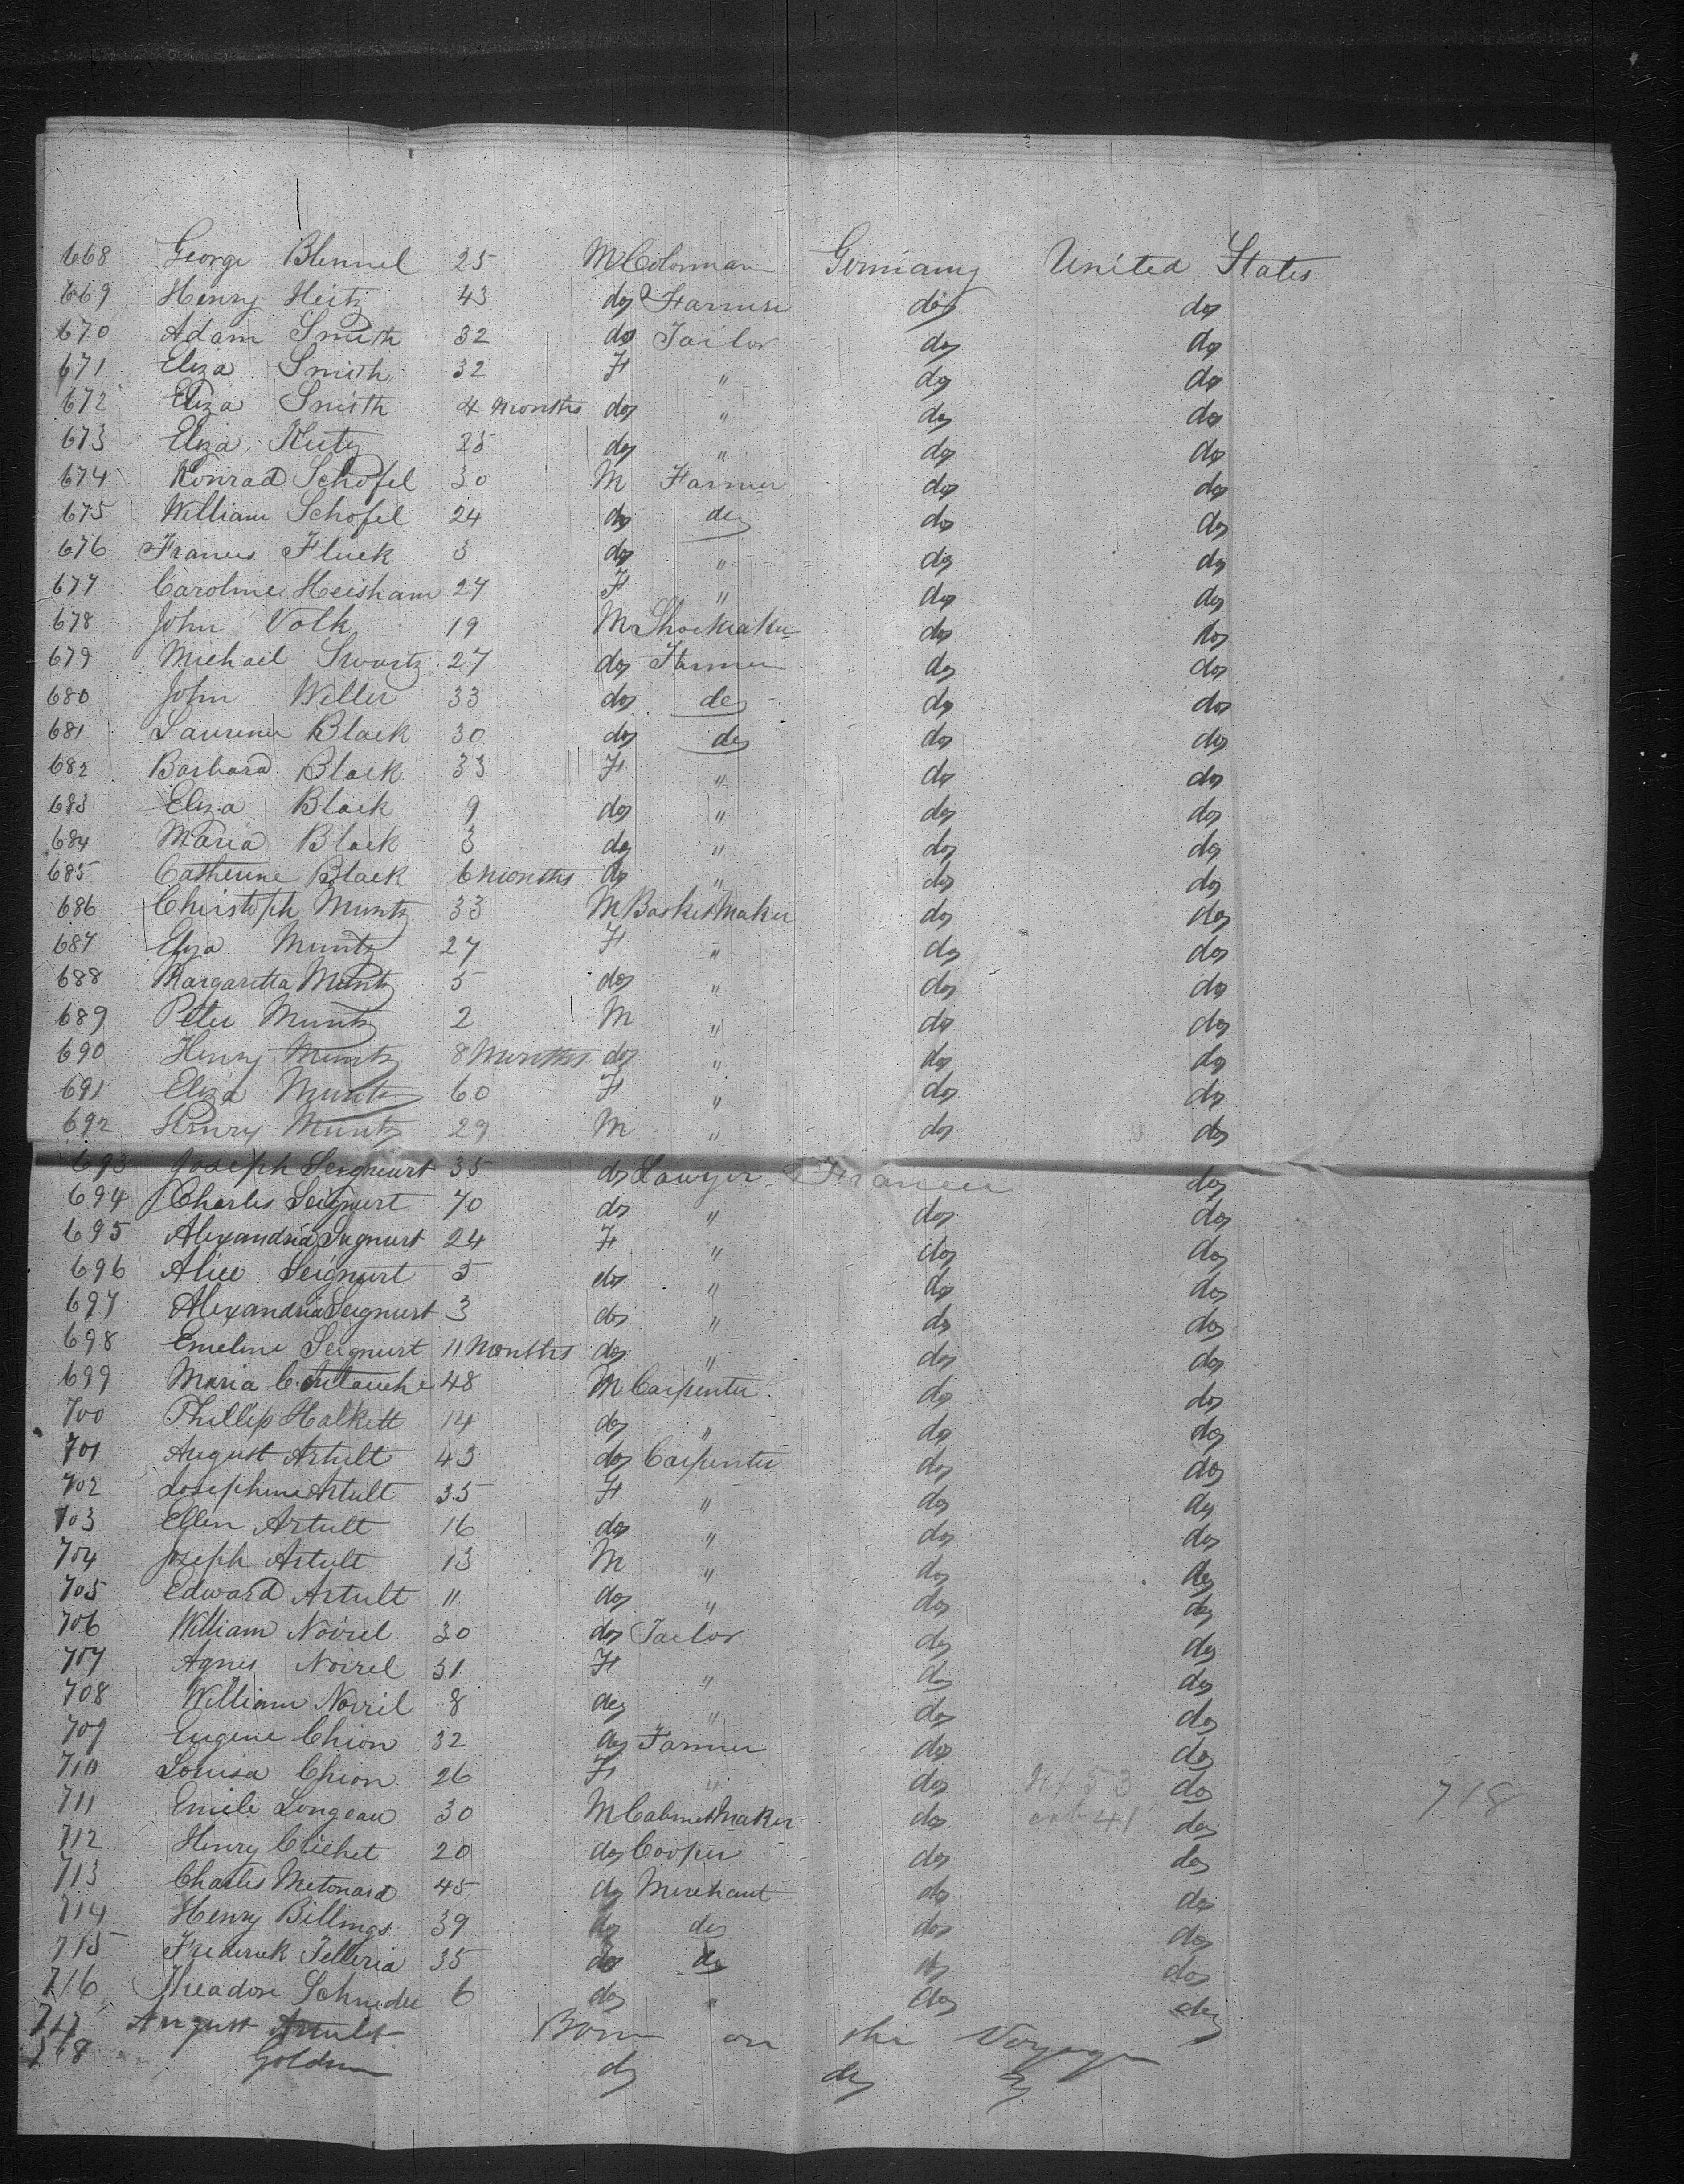 668 George Blennel 25 M Colorman Germany United States
669 Henry Heitz 43 do Farmer do do
670 Adam Smith 32 do Tailor do do
671 Eliza Smith 32 F " do do
672 Eliza Smith 4 Months do " do do
673 Eliza Kutz 25 do " do do
674 Konrad Schofel 30 M Farmer do do
675 William Schofel 24 do do do do
676 Francis Fluck 3 do " do do
677 Caroline Heisham 27 F " do do
678 John Volk 19 M Shoemaker do do
679 Michael Swartz 27 do Farmer do do
680 John Weller 33 do do do do
681 Laurence Black 30 do do do do
682 Barbara Black 33 F " do do
683 Eliza Black 9 do " do do
684 Maria Black 3 do " do do
685 Catherine Black 6 Months do " do do
686 Christoph Muntz 33 M Basket Maker do do
687 Eliza Muntz 27 F " do do
688 Margaretta Muntz 5 do " do do
689 Peter Muntz 2 M " do do
690 Henry Muntz 8 Months do " do do
691 Eliza Muntz 60 F " do do
692 Henry Muntz 29 M " do do
693 Joseph Seigneurt 35 do Lawyer France do
694 Charles Seignurt 70 do " do do
695 Alexandria Seignurt 24 F " do do
696 Alice Seignurt 5 do " do do
697 Alexandria Seignurt 3 do " do do
698 Emeline Seignurt 11 Months do " do do
699 Maria C. 48 M Carpenter do do
700 Phillip Halkett 14 do " do do
701 August Artult 43 do Carpenter do do
702 Josephine Artult 35 F " do do
703 Ellen Artult 16 do " do do
704 Joseph Artult 13 M " do do
705 Edward Artult 11 do " do do
706 William Noirel 30 do Tailor do do
707 Agnes Noirel 31 F " do do
708 William Noirel 8 do " do do
709 Eugene Chion 32 do Farmer do do
710 Louisa Chion 26 F " do 53 do 718
711 Emile Longeau 30 M Cabinet Maker do 41 do
712 Henry Crichet 20 do Cooper do do
713 Charles Metonard 45 do Merchant do do
714 Henry Billings 39 do do do do
715 Frederick Telleria 35 do do do do
716 Theadore Schneider 6 do " do do
717 August Artult Born on the Voyage
718 Golden do do do